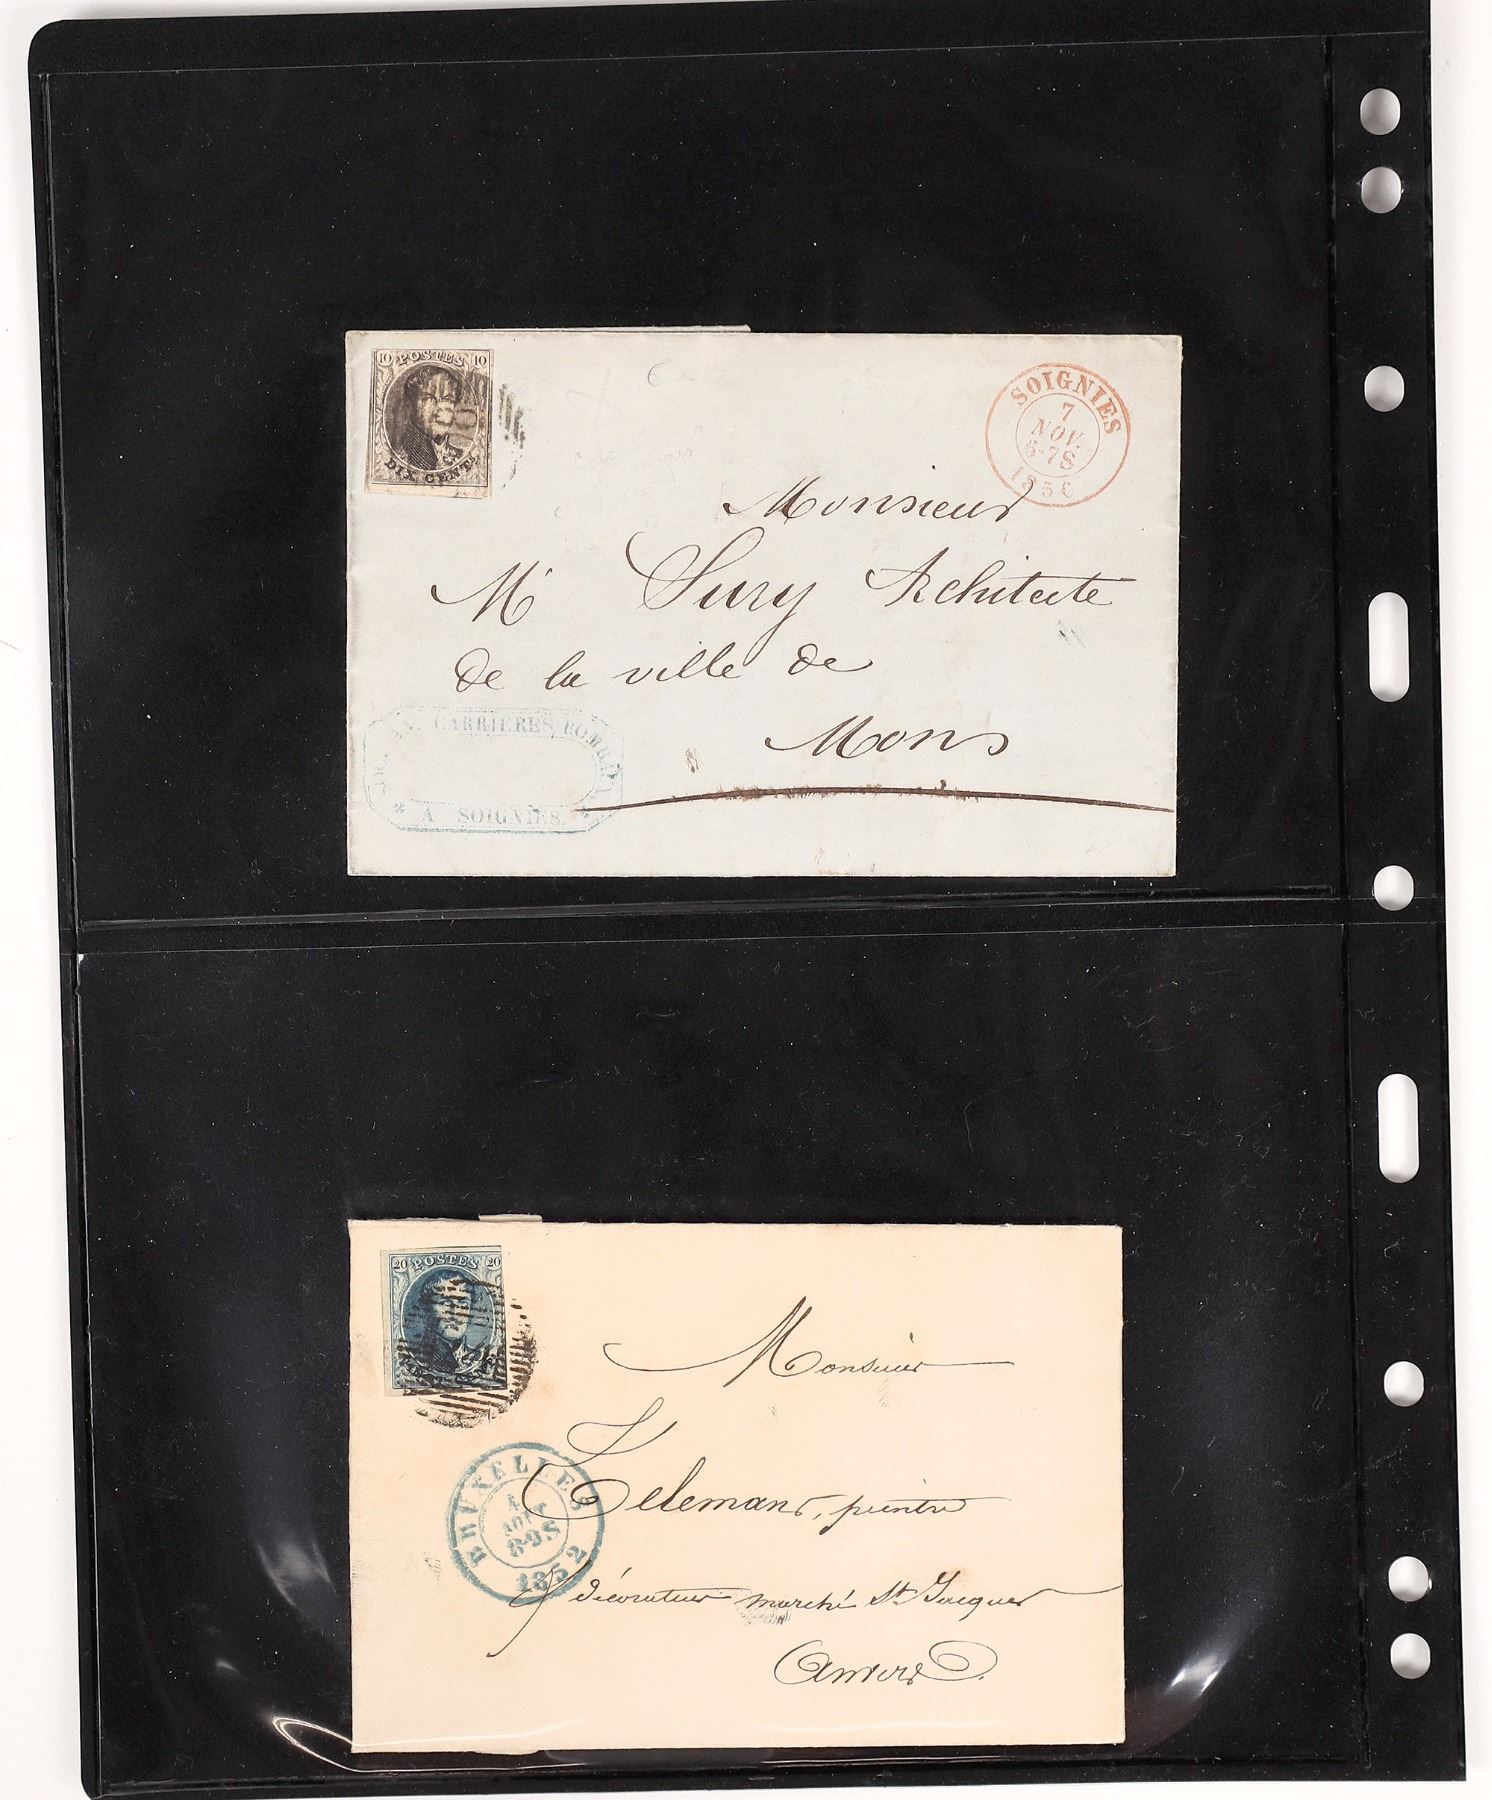 10 POSTES 10
DIX CENTS
SOIGNIES
7
NOV.
6-7S
1856
Monsieur
Mr Sury Architecte
de la ville de
Mons
CARRIERES
A SOIGNIES.
20 POSTES 20
Monsieur
Telemans, peintre
décorateur marché St Jacques
Anvers.
BRUXELLES
4
AOUT
8-9S
1852